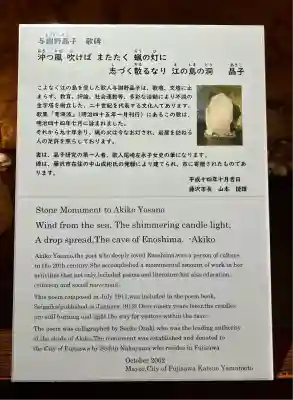 与謝野晶子　歌碑
沖つ風　吹けば　またたく　蝋の灯に
志づく散るなり　江の島の洞　　晶子
こよなく江の島を愛した歌人与謝野晶子は、歌壇、文壇に止
まらず、教育、評論、社会運動等、多彩な活動により不滅の
金字塔を樹立した、二十世紀を代表する文化人であります。
歌集「青海波」(明治四十五年一月刊行)にあるこの歌は、
明治四十四年七月に詠まれました。
それから九十年余り、蝋の火は今なお灯され、岩屋を訪ねる
人の足許を照らしております。
書は、晶子研究の第一人者、歌人尾崎左永子女史の筆になります。
碑は、藤沢市在住の中山成彬氏の発願により建てられ、市に寄贈されたものであ
ります。
平成十四年十月吉日
藤沢市長　山本　捷雄
Stone Monument to Akiko Yosano
Wind from the sea. The shimmering candle light.
A drop spread,The cave of Enoshima. -Akiko
Akiko Yosano,the poet who deeply loved Enoshima,was a person of culture
in the 20th century.She accomplished a monumental amount of work in her
activities that not only included poems and literature but also education,
criticism and social movement.
This poem composed in July 1911,was included in the poem book,
Seigaiha(published in January 1912).Over ninety years later,the candles
are still burning and light the way for visitors within the cave.
The poem was calligraphed by Saeko Ozaki who was the leading authority
of the study of Akiko.The monument was established and donated to
the City of Fujisawa by Nakayama who resides in Fujisawa
October 2002
Mayor,City of Fujisawa Katsuo Yamamoto